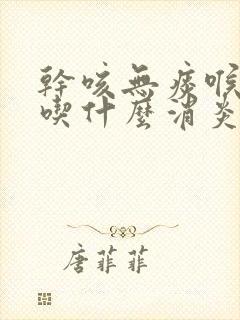 幹咳無痰喉
喫什麼消炎
唐菲菲